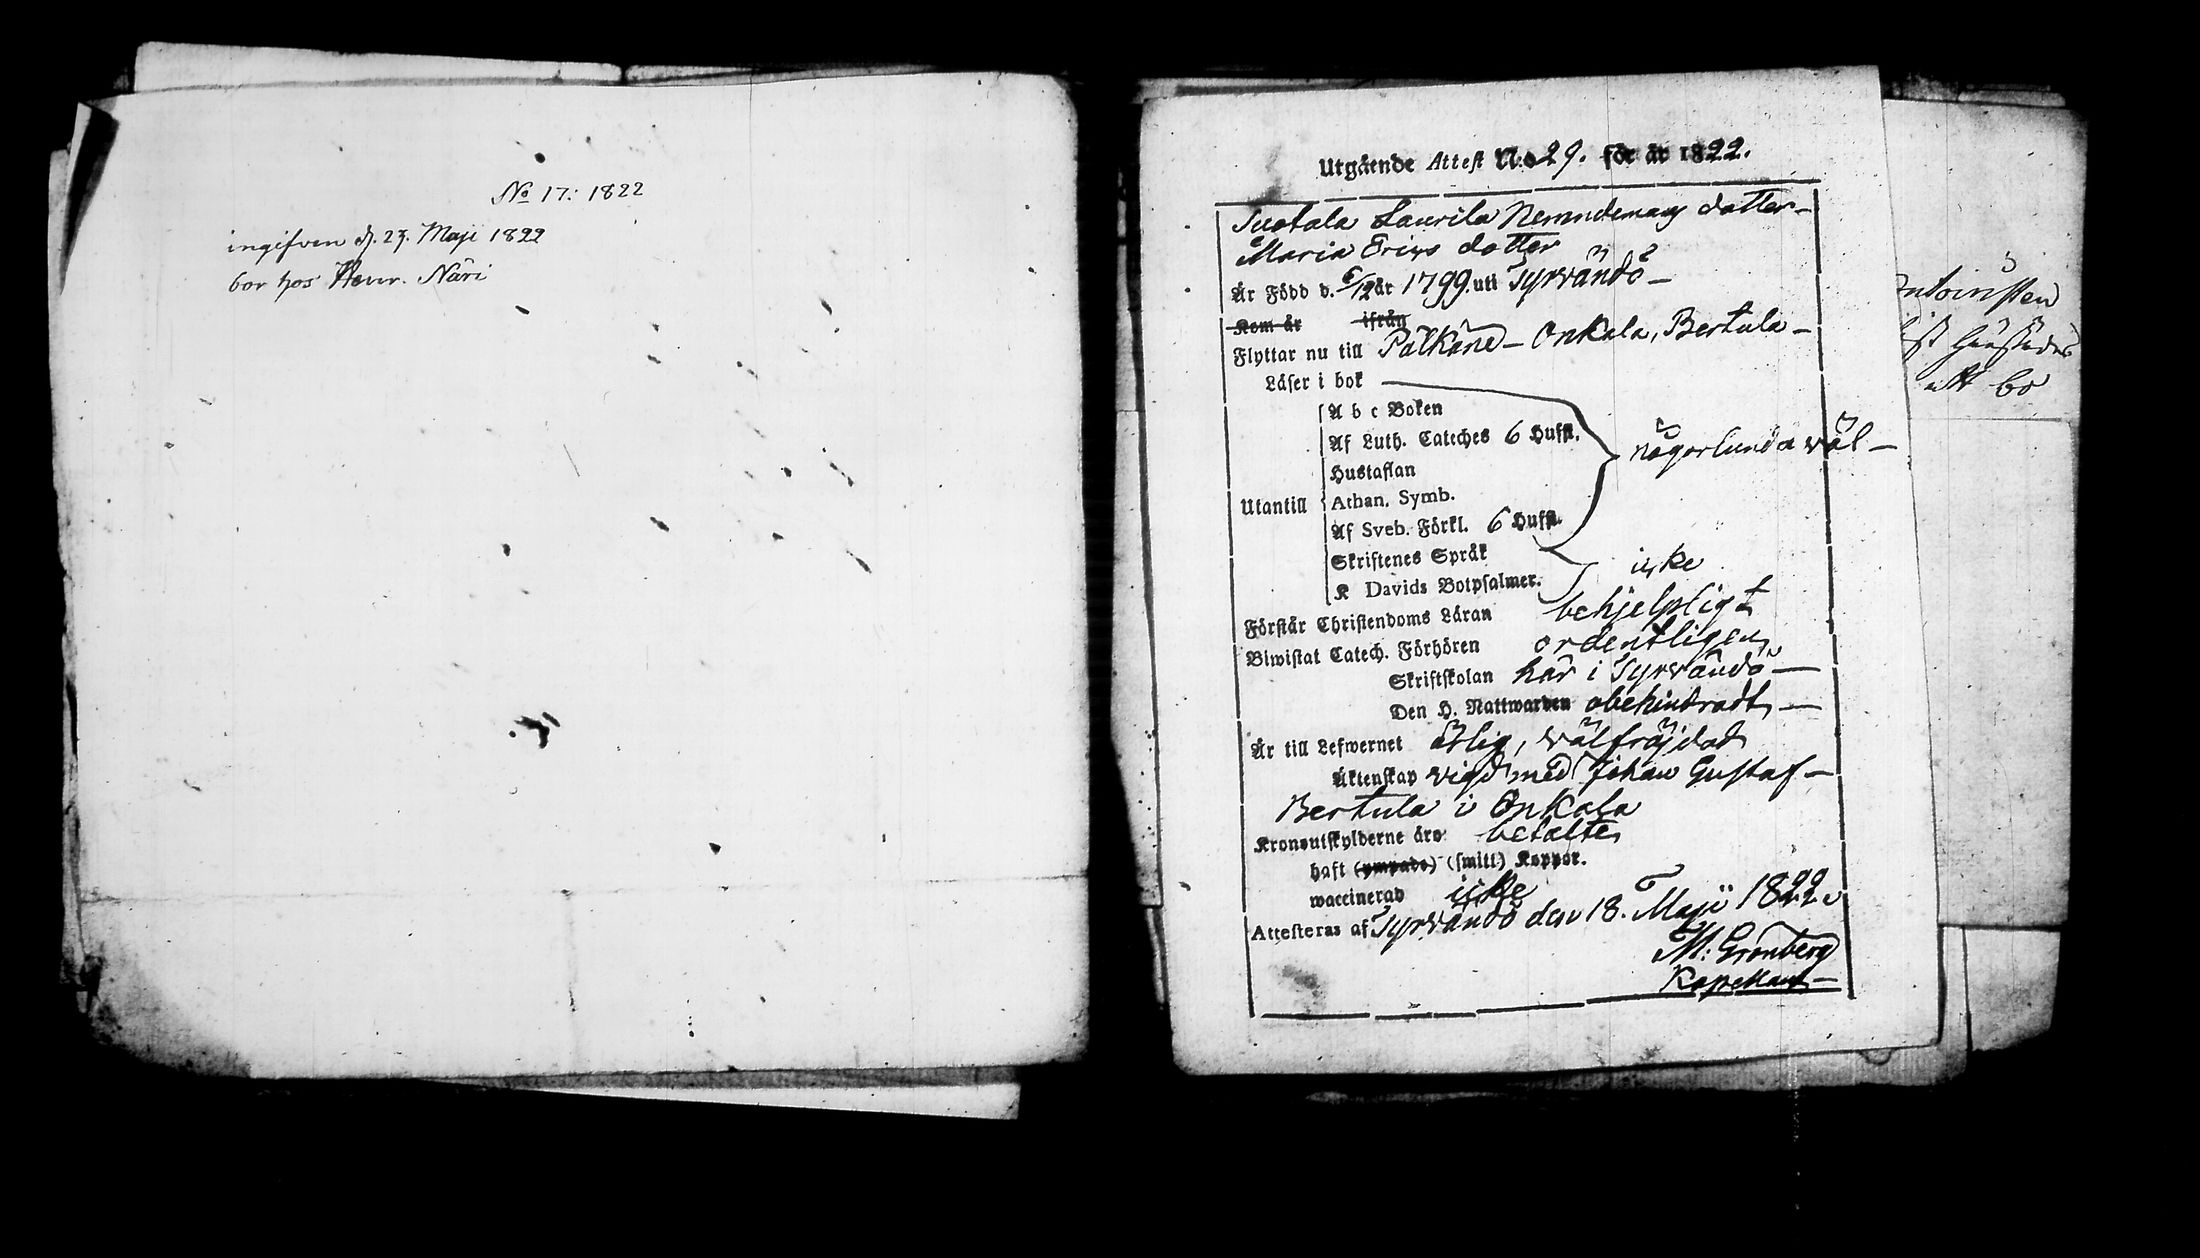 No 17: 1822
ingifven d. 27. Maji 1822
bor hos Henr. Näri
Utgående Attest N:o 29. för år 1822.
Suotala Laurila Nemndemans dotter-
Maria Ericsdotter
Är Född d. 6/12 år 1799. uti Tyrvändö -
Kom år ifrån
Flyttar nu till Pälkäne - Onkala, Bertula -
Läser i bok
A b c Boken
Af Luth. Cateches 6 Hufst.
någorlunda väl -
Hustaflan
Utantill Athan. Symb.
Af Sveb. Förkl. 6 Hufst.
Skriftenes Språk icke
K Davids Botpsalmer.
Förstår Christendoms Läran behjelpligt
Biwistat Catech. Förhören ordentligen
Skriftskolan här i Tyrvändö -
Den H. Nattwarden obehindradt -
Är till Lefwernet ärlig, välfräjdad
Äktenskap vigd med Johan Gustaf -
Bertula i Onkala
Kronoutskylderne äro betalte
haft (ympade) (smitt) Koppor.
waccinerad icke
Attesteras af Tyrvändö den 18. Maji 1822.
M: Grönberg
Kapellan -
att bo